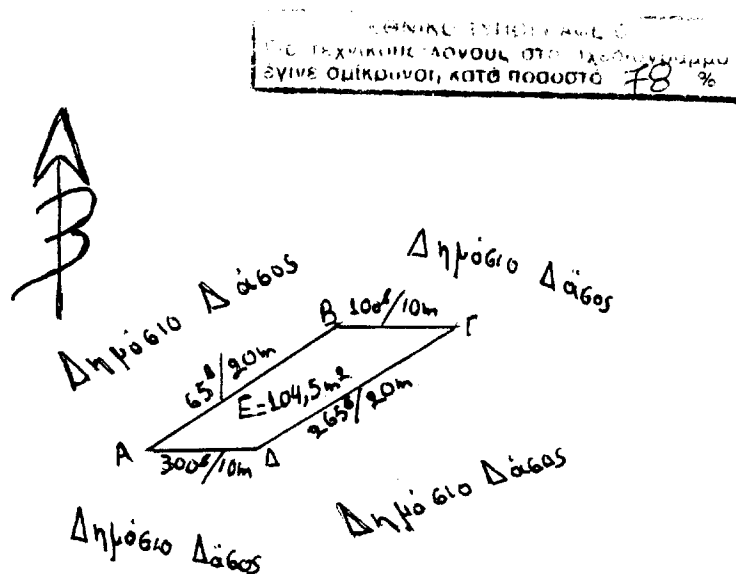 ΕΘΝΙΚΟ ΤΥΠΟΓΡΑΦΕΙΟ
Για τεχνικούς λόγους στο σχεδιάγραμμα
έγινε σμίκρυνση κατά ποσοστό 78 %
Β
Δημόσιο Δάσος
Δημόσιο Δάσος
Β 100ᵍ/10m Γ
65ᵍ/20m
Ε=104,5m²
265ᵍ/20m
Α 300ᵍ/10m Δ
Δημόσιο Δάσος
Δημόσιο Δάσος